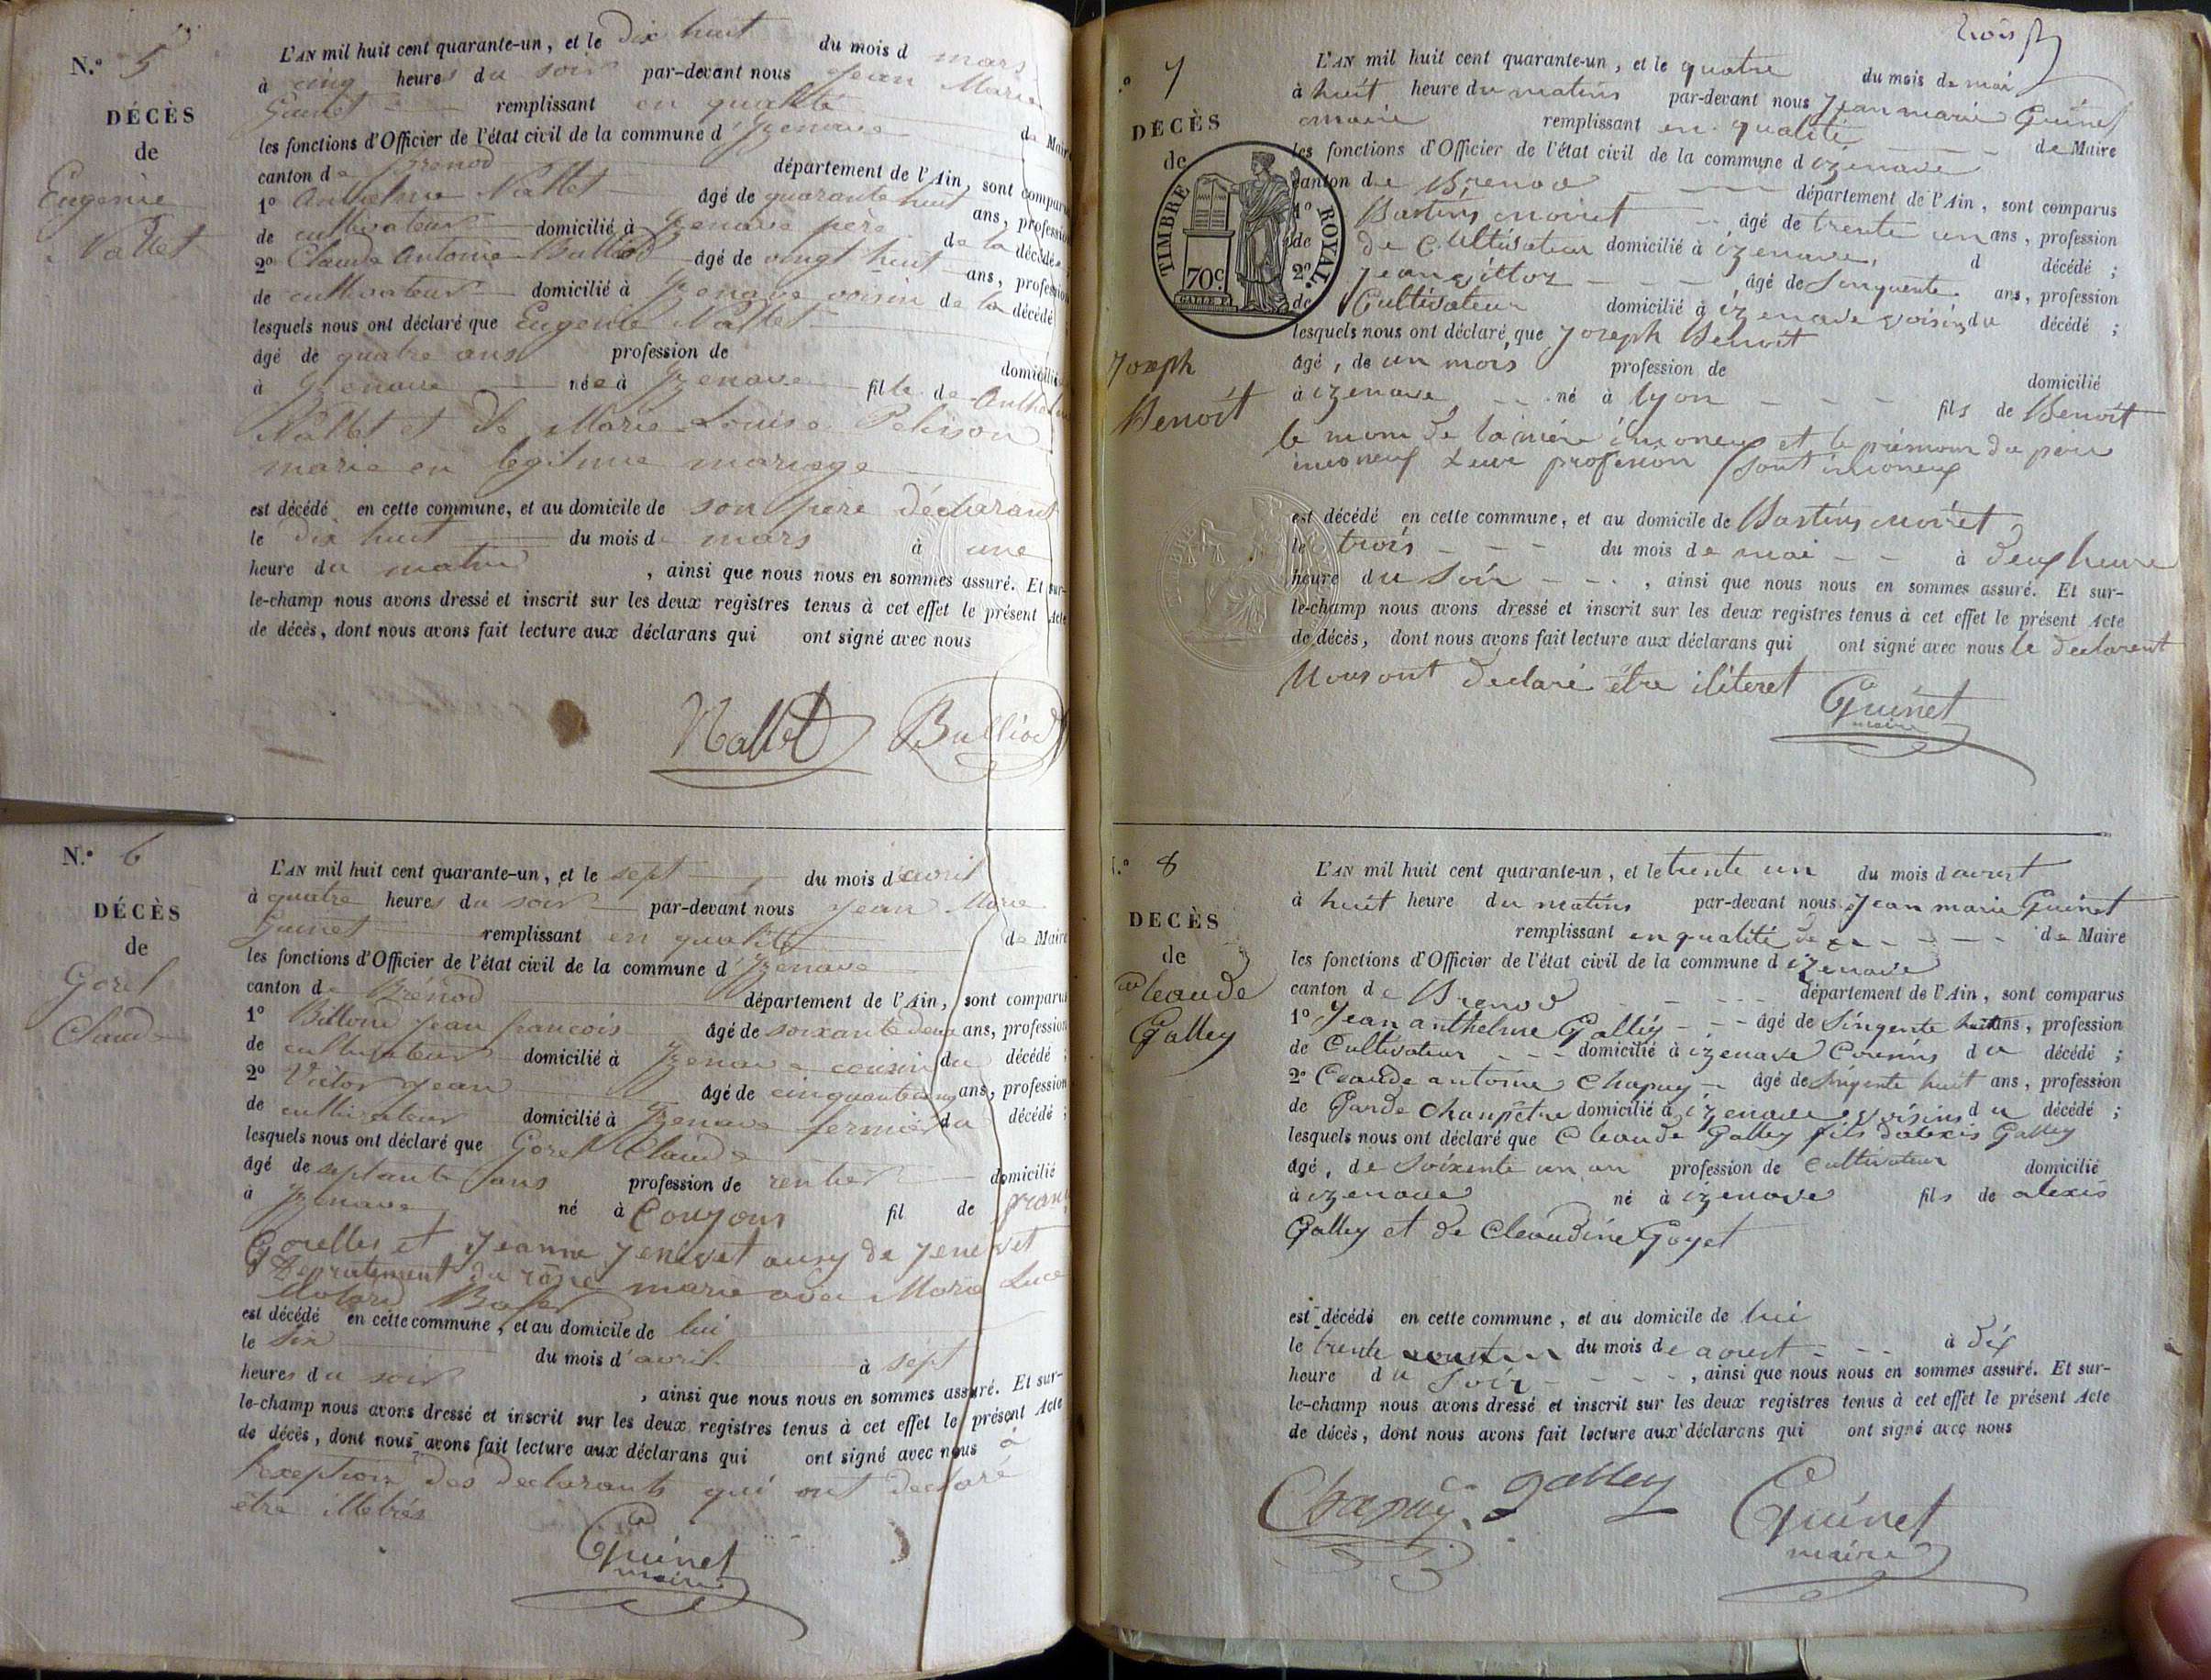 N.° 5
DÉCÈS
de
Eugenie
Nallet
L'AN mil huit cent quarante-un, et le dix huit du mois d mars
à cinq heures du soir par-devant nous Jean Marie
Guinet remplissant en qualité de Maire
les fonctions d'Officier de l'état civil de la commune d'Izenave
canton de Brenod département de l'Ain, sont comparus
1° Anthelme Nallet âgé de quarante huit ans, profession
de cultivateur domicilié à Izenave père de la décédée
2° Claude Antoine Bulliod âgé de vingt huit ans, profession
de cultivateur domicilié à Izenave voisin de la décédé
lesquels nous ont déclaré que Eugenie Nallet
âgé de quatre ans profession de domicilié
à Izenave née à Izenave fille de Anthelme
Nallet et de Marie Louise Pelisson
marie en legitime mariage
est décédé en cette commune, et au domicile de son père déclarant
le dix huit du mois de mars à une
heure du matin, ainsi que nous nous en sommes assuré. Et sur-
le-champ nous avons dressé et inscrit sur les deux registres tenus à cet effet le présent Acte
de décès, dont nous avons fait lecture aux déclarans qui ont signé avec nous
Nallet Bulliod
N.° 6
DÉCÈS
de
Gorel
Claude
L'AN mil huit cent quarante-un, et le sept du mois d'avril
à quatre heures du soir par-devant nous Jean Marie
Guinet remplissant en qualité de Maire
les fonctions d'Officier de l'état civil de la commune d'Izenave
canton de Brénod département de l'Ain, sont comparus
1° Billond Jean françois âgé de soixante deux ans, profession
de cultivateur domicilié à Izenave cousin du décédé ;
2° Vittoz Jean âgé de cinquante cinq ans, profession
de cultivateur domicilié à Izenave fermier du décédé ;
lesquels nous ont déclaré que Gorel Claude
âgé de septante ans profession de rentier domicilié
à Izenave né à Couzons fil de
Gorelles et Jeanne Jenevet ausy de Jenevet
Departement du rône marie avec Marie Luce
est décédé en cette commune, et au domicile de lui
le six du mois d'avril à sept
heures du soir, ainsi que nous nous en sommes assuré. Et sur-
le-champ nous avons dressé et inscrit sur les deux registres tenus à cet effet le présent Acte
de décès, dont nous avons fait lecture aux déclarans qui ont signé avec nous à
l'exeption des declarants qui ont declaré
être illetrés
Guinet
maire
trois
° 7
DÉCÈS
de
TIMBRE ROYAL.
70 c.
Joseph
Benoit
L'AN mil huit cent quarante-un, et le quatre du mois de mai
à huit heure du matins par-devant nous Jean marie Guinet
maire remplissant en qualité de Maire
les fonctions d'Officier de l'état civil de la commune d izenave
canton de Brenod département de l'Ain, sont comparus
1° Bastins moiret âgé de trente un ans, profession
de Cultivateur domicilié à izenave, d décédé ;
2° Jean vittoz âgé de Sinquente ans, profession
de Cultivateur domicilié à izenave voisins du décédé ;
lesquels nous ont déclaré que Joseph Benoit
âgé, de un mois profession de domicilié
à izenave né à lyon fils de Benoit
le nom de la mère inconeux et le prénom du père
inconeux Leur profession sont inconeux
est décédé en cette commune, et au domicile de Bastins moiret
le trois du mois de mai à deux heure
heure du Soir, ainsi que nous nous en sommes assuré. Et sur-
le-champ nous avons dressé et inscrit sur les deux registres tenus à cet effet le présent Acte
de décès, dont nous avons fait lecture aux déclarans qui ont signé avec nous le declarent
Nous ont déclaré être iliteret
Guinet
maire
.° 8
DÉCÈS
de
Cleaude
Galley
L'AN mil huit cent quarante-un, et le trente un du mois d aoust
à huit heure du matins par-devant nous Jean marie Guinet
remplissant en qualité de de Maire
les fonctions d'Officier de l'état civil de la commune d izenave
canton de Brenod département de l'Ain, sont comparus
1° Jean anthelme Galley âgé de Singente huit ans, profession
de Cultivateur domicilié à izenave Cousins du décédé ;
2° Cleaude antoine Chapuy âgé de Singente huit ans, profession
de Garde Chanpêtre domicilié à izenave voisins du décédé ;
lesquels nous ont déclaré que Cleaude Galley fils dalexis Galley
âgé, de Soixente un an profession de Cultivateur domicilié
à izenave né à izenave fils de alexis
Galley et de Cleaudine Goyet
est décédé en cette commune, et au domicile de lui
le trente du mois de aoust à dix
heure du Soir, ainsi que nous nous en sommes assuré. Et sur-
le-champ nous avons dressé et inscrit sur les deux registres tenus à cet effet le présent Acte
de décès, dont nous avons fait lecture aux déclarans qui ont signé avec nous
Chapuy galley Guinet
maire